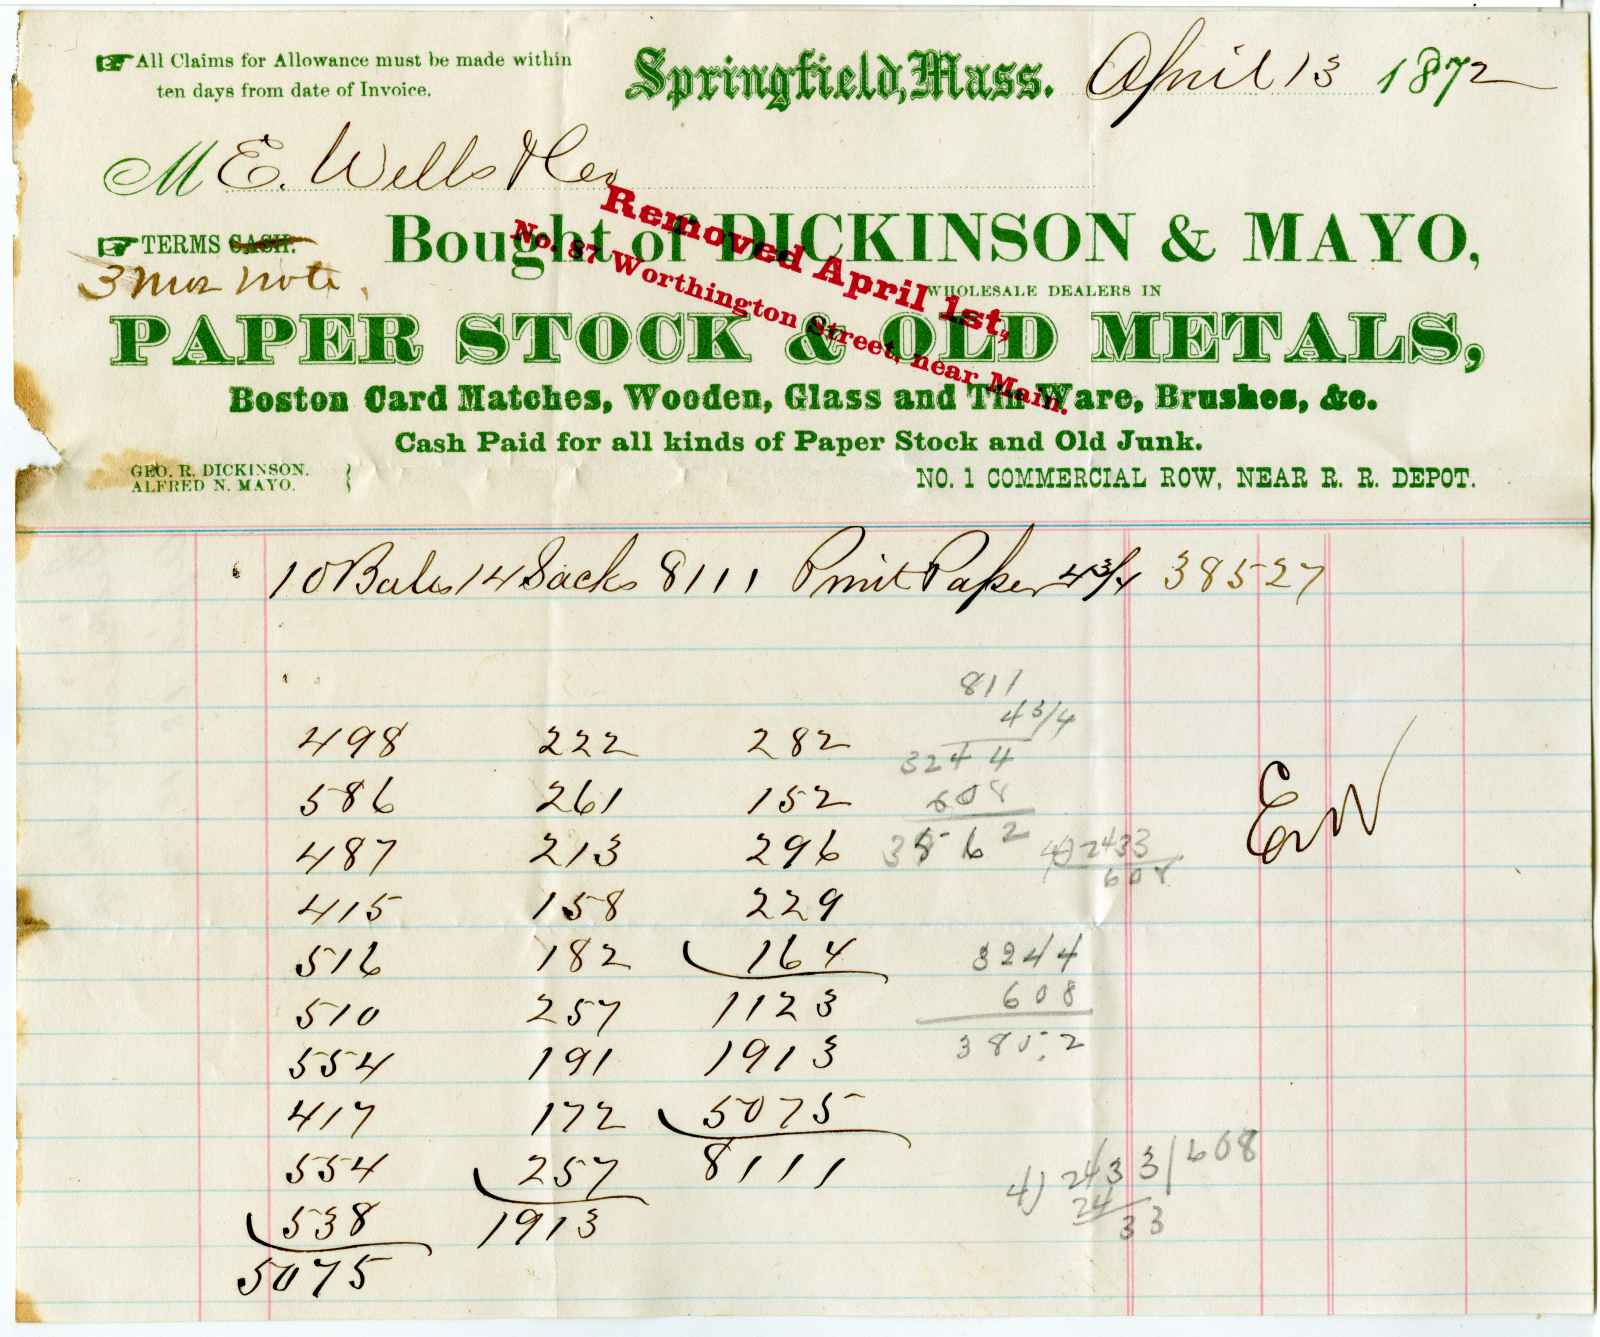 All Claims for Allowance must be made within
ten days from date of Invoice.
Springfield, Mass. April 13 1872
M E. Wells & Co
Removed April 1st,
No. 87 Worthington Street, near Main.
TERMS CASH.
3 mos note
Bought of DICKINSON & MAYO,
WHOLESALE DEALERS IN
PAPER STOCK & OLD METALS,
Boston Card Matches, Wooden, Glass and Tin Ware, Brushes, &c.
Cash Paid for all kinds of Paper Stock and Old Junk.
GEO. R. DICKINSON.
ALFRED N. MAYO.
NO. 1 COMMERCIAL ROW, NEAR R. R. DEPOT.
10 Bales 14 Sacks 8111 Print Paper 4 3/4 385 27
498
586
487
415
516
510
554
417
554
538
5075
222
261
213
158
182
257
191
172
257
1913
282
152
296
229
164
1123
1913
5075
8111
811
4 3/4
3244
608
3852
4) 2433
608
3244
608
3852
4) 2433 | 608
24
33
EW